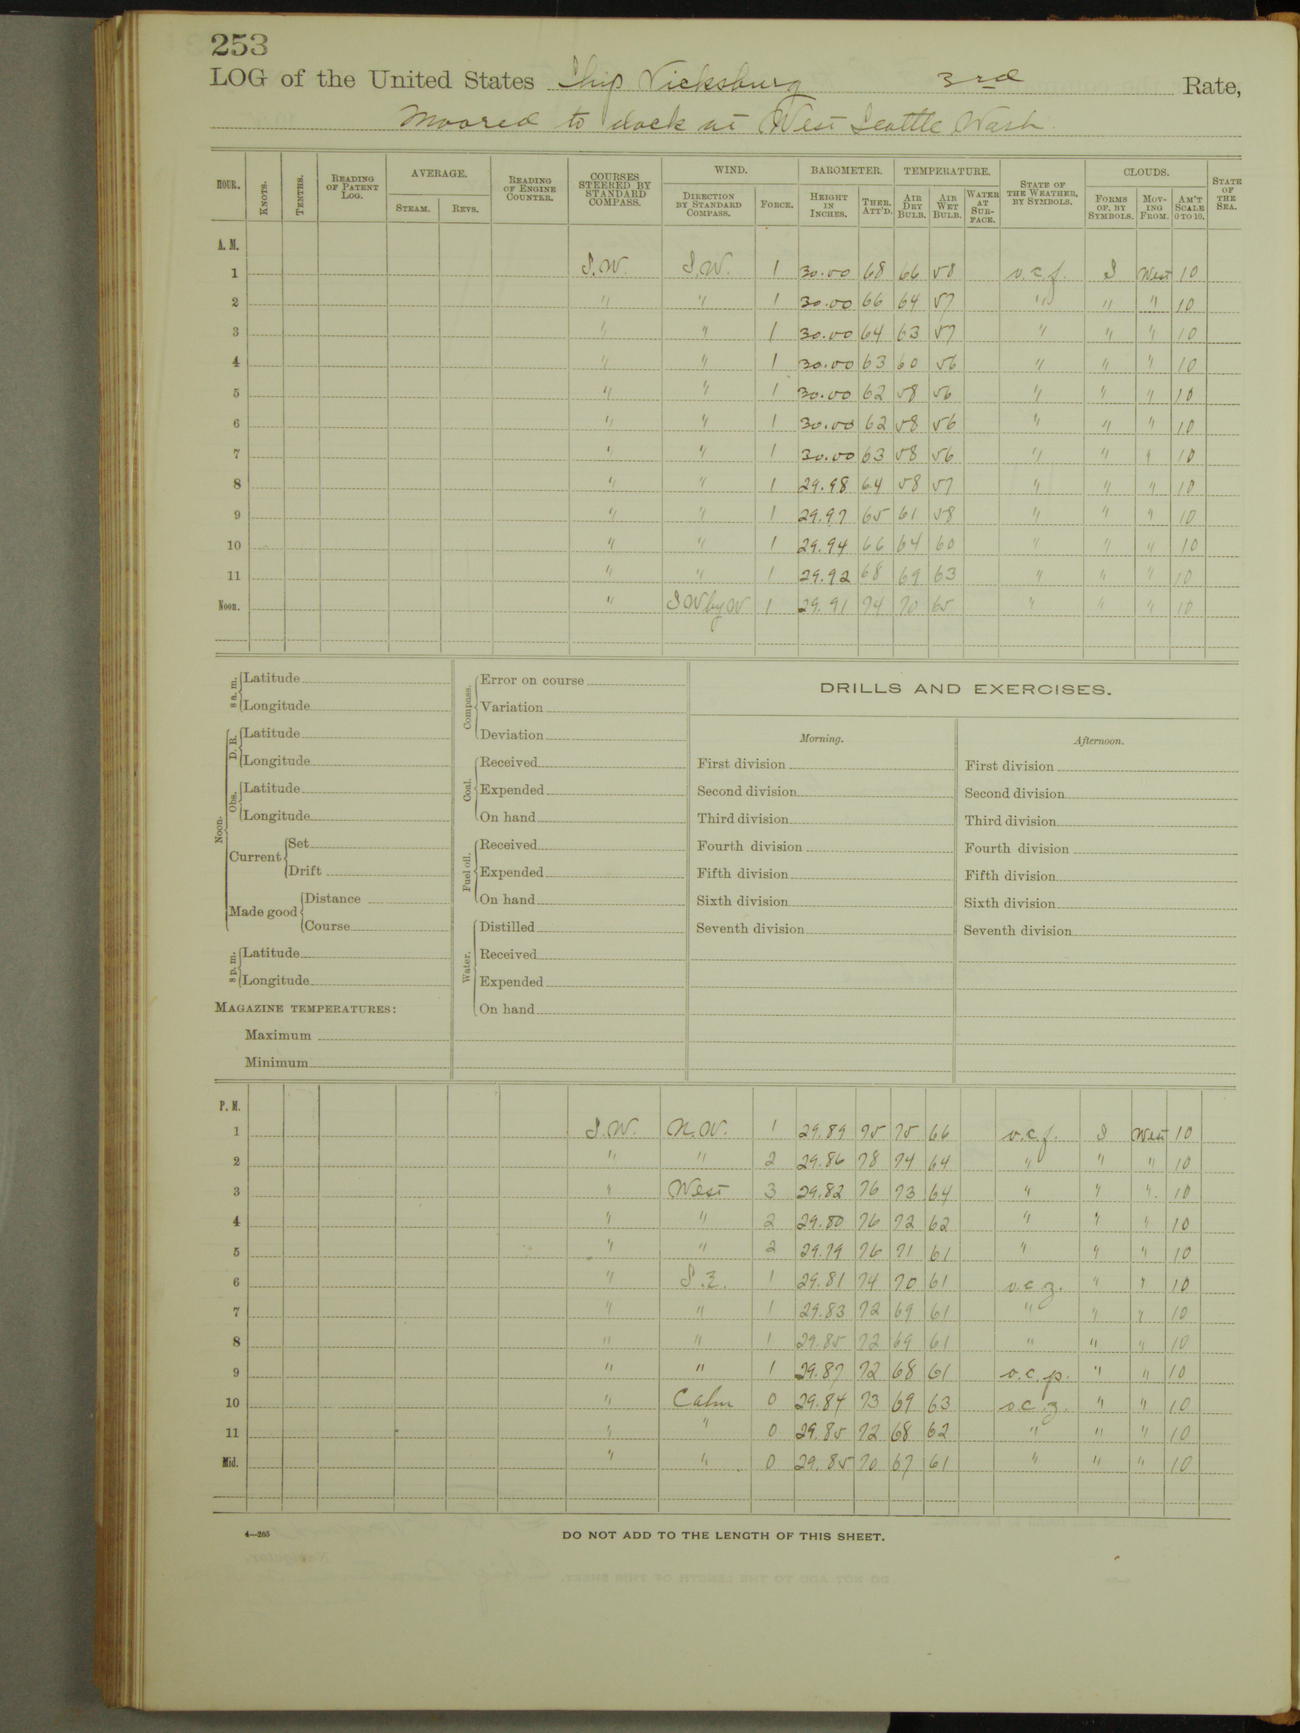 253
LOG of the United States Ship Vicksburg 3rd Rate,
Moored to dock at West Seattle Wash.
HOUR. KNOTS. TENTHS. READING OF PATENT LOG. AVERAGE. STEAM. REVS. READING OF ENGINE COUNTER. COURSES STEERED BY STANDARD COMPASS. WIND. DIRECTION BY STANDARD COMPASS. FORCE. BAROMETER. HEIGHT IN INCHES. THER. ATT'D. TEMPERATURE. AIR DRY BULB. AIR WET BULB. WATER AT SURFACE. STATE OF THE WEATHER, BY SYMBOLS. CLOUDS. FORMS OF, BY SYMBOLS. MOVING FROM. AM'T SCALE 0 TO 10. STATE OF THE SEA.
A. M.
1 S.W. S.W. 1 30.00 68 66 58 o.c.f. S West 10
2 " " 1 30.00 66 64 57 " " " 10
3 " " 1 30.00 64 63 57 " " " 10
4 " " 1 30.00 63 60 56 " " " 10
5 " " 1 30.00 62 58 56 " " " 10
6 " " 1 30.00 62 58 56 " " " 10
7 " " 1 30.00 63 58 56 " " " 10
8 " " 1 29.98 64 58 57 " " " 10
9 " " 1 29.97 65 61 58 " " " 10
10 " " 1 29.94 66 64 60 " " " 10
11 " " 1 29.92 68 69 63 " " " 10
Noon. " SW by W 1 29.91 74 70 65 " " " 10
8 a. m. Latitude
Longitude
Noon. D. R. Latitude
Longitude
Obs. Latitude
Longitude
Current Set
Drift
Made good Distance
Course
8 p. m. Latitude
Longitude
MAGAZINE TEMPERATURES:
Maximum
Minimum
Compass. Error on course
Variation
Deviation
Coal. Received
Expended
On hand
Fuel oil. Received
Expended
On hand
Water. Distilled
Received
Expended
On hand
DRILLS AND EXERCISES.
Morning.
First division
Second division
Third division
Fourth division
Fifth division
Sixth division
Seventh division
Afternoon.
First division
Second division
Third division
Fourth division
Fifth division
Sixth division
Seventh division
P. M.
1 S.W. N.W. 1 29.89 75 75 66 o.c.f. S West 10
2 " " 2 29.86 78 74 64 " " " 10
3 " West 3 29.82 76 73 64 " " " 10
4 " " 2 29.80 76 72 62 " " " 10
5 " " 2 29.79 76 71 61 " " " 10
6 " S.E. 1 29.81 74 70 61 o.c.z. " " 10
7 " " 1 29.83 72 69 61 " " " 10
8 " " 1 29.85 72 69 61 " " " 10
9 " " 1 29.87 72 68 61 o.c.p. " " 10
10 " Calm 0 29.84 73 69 63 o.c.z. " " 10
11 " " 0 29.85 72 68 62 " " " 10
Mid. " " 0 29.85 70 67 61 " " " 10
4—265
DO NOT ADD TO THE LENGTH OF THIS SHEET.